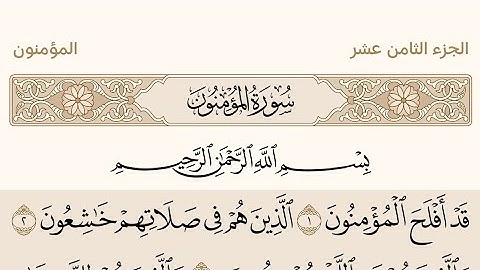 الجزء الثامن عشر
المؤمنون
سُورَةُ المُؤۡمِنُونَ
بِسۡمِ ٱللَّهِ ٱلرَّحۡمَٰنِ ٱلرَّحِيمِ
قَدۡ أَفۡلَحَ ٱلۡمُؤۡمِنُونَ ١ ٱلَّذِينَ هُمۡ فِي صَلَاتِهِمۡ خَٰشِعُونَ ٢